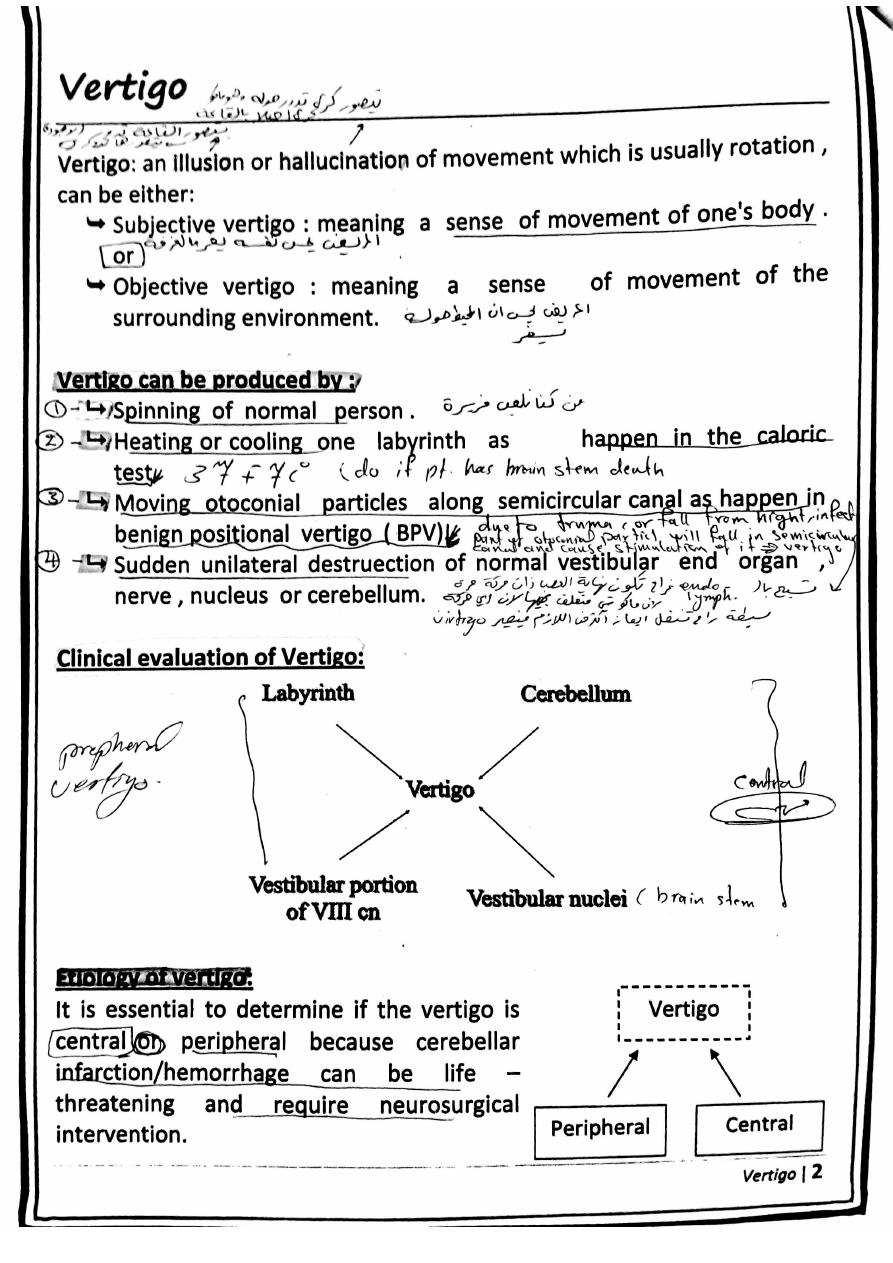 Vertigo
Vertigo: an illusion or hallucination of movement which is usually rotation ,
can be either:
↳ Subjective vertigo : meaning a sense of movement of one's body .
or
↳ Objective vertigo : meaning a sense of movement of the
surrounding environment.
المريض يحس ان المحيط حوله
Vertigo can be produced by :
① - ↳ Spinning of normal person .
② - ↳ Heating or cooling one labyrinth as happen in the caloric
test (do if pt. has brain stem death
③ - ↳ Moving otoconial particles along semicircular canal as happen in
benign positional vertigo ( BPV) due to truma or fall from hight, infect
part of otoconial particl will fall in semicircular
canal and cause stimulation of it ⇒ vertigo
④ - ↳ Sudden unilateral destruection of normal vestibular end organ ,
nerve , nucleus or cerebellum.
endo
lymph.
Clinical evaluation of Vertigo:
Labyrinth Cerebellum
prepheral
vertigo.
Vertigo
central
Vestibular portion
of VIII cn
Vestibular nuclei ( brain stem
Etiology of vertigo:
It is essential to determine if the vertigo is
central or peripheral because cerebellar
infarction/hemorrhage can be life –
threatening and require neurosurgical
intervention.
Vertigo
Peripheral Central
Vertigo | 2